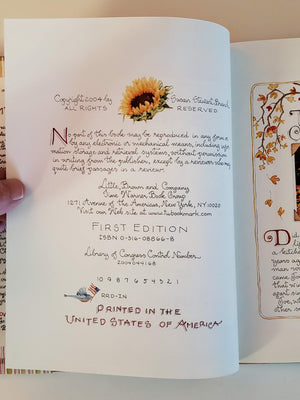 Copyright 2004 by Susan Stewart Branch
ALL RIGHTS RESERVED
No part of this book may be reproduced in any form or
by any electronic or mechanical means, including infor-
mation storage and retrieval systems, without permission
in writing from the publisher, except by a reviewer who may
quote brief passages in a review.
Little, Brown and Company
Time Warner Book Group
1271 Avenue of the Americas, New York, NY 10020
Visit our Web site at www.twbookmark.com
FIRST EDITION
ISBN 0-316-08866-8
Library of Congress Control Number
2004044168
10 9 8 7 6 5 4 3 2 1
RRD-IN
PRINTED IN THE
UNITED STATES OF AMERICA